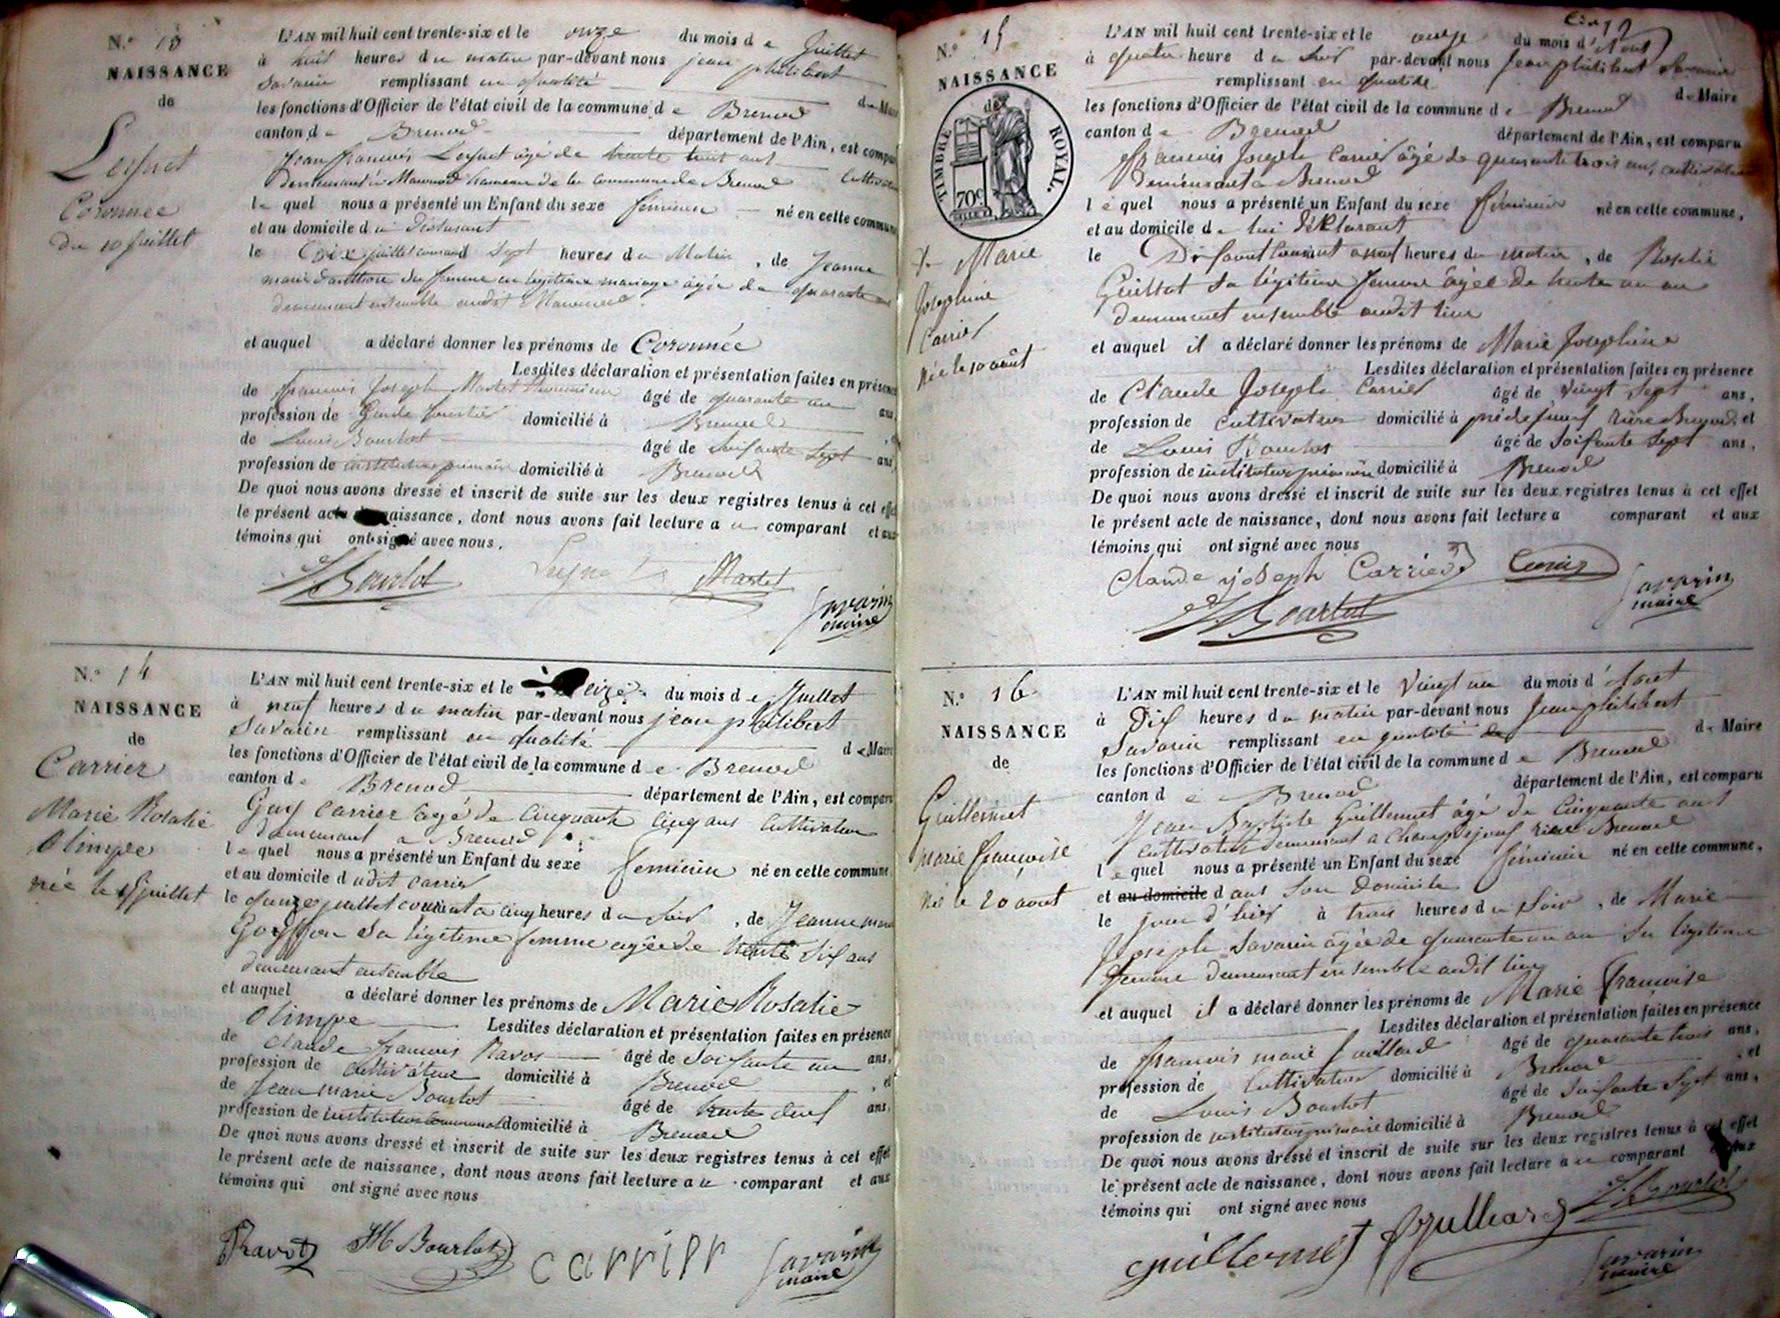 N.º 13
NAISSANCE
de
Coronnée
du 10 juillet
L'AN mil huit cent trente-six et le onze du mois de Juillet
à huit heures du matin par-devant nous jean philibert
Savarin remplissant en qualité de Maire
les fonctions d'Officier de l'état civil de la commune de Brenod
canton de Brenod département de l'Ain, est comparu
Jean françois âgé de trente huit ans
demeurant à hameau de la commune de Brenod Cultivateur
lequel nous a présenté un Enfant du sexe féminin né en cette commune
et au domicile du Déclarant
le Dix juillet courant à sept heures du Matin, de Jeanne
marie femme en légitime mariage âgée de quarante
demeurant ensemble audit
et auquel a déclaré donner les prénoms de Coronnée
Lesdites déclaration et présentation faites en présence
de françois Joseph Martet âgé de quarante un ans
profession de Garde forestier domicilié à Brenod
de Louis Bourlot âgé de soixante sept ans
profession de instituteur primaire domicilié à Brenod
De quoi nous avons dressé et inscrit de suite sur les deux registres tenus à cet effet
le présent acte de naissance, dont nous avons fait lecture au comparant et aux
témoins qui ont signé avec nous.
L. Bourlot Martet
Savarin
maire
N.º 14
NAISSANCE
de
Carrier
Marie Rosalie
Olimpe
née le 15 juillet
L'AN mil huit cent trente-six et le seize du mois de Juillet
à neuf heures du matin par-devant nous jean philibert
Savarin remplissant en qualité de Maire
les fonctions d'Officier de l'état civil de la commune de Brenod
canton de Brenod département de l'Ain, est comparu
Guy Carrier âgé de Cinquante Cinq ans Cultivateur
demeurant à Brenod
lequel nous a présenté un Enfant du sexe feminin né en cette commune
et au domicile dudit Carrier
le quinze juillet courant a cinq heures du soir, de Jeanne marie
Goyffon sa légitime femme agée de trente dix ans
demeurant ensemble
et auquel a déclaré donner les prénoms de Marie Rosalie
Olimpe Lesdites déclaration et présentation faites en présence
de Claude françois Ravot âgé de soixante un ans,
profession de cultivateur domicilié à Brenod, et
de Jean marie Bourlot âgé de trente deux ans,
profession de instituteur communal domicilié à Brenod
De quoi nous avons dressé et inscrit de suite sur les deux registres tenus à cet effet
le présent acte de naissance, dont nous avons fait lecture au comparant et aux
témoins qui ont signé avec nous
Ravot JM Bourlot carrier Savarin
maire
12
N.º 15
NAISSANCE
de
TIMBRE ROYAL.
70c
Marie
Josephine
Carrier
Née le 10 août
L'AN mil huit cent trente-six et le onze du mois d'Aout
à quatre heure du soir par-devant nous Jean philibert Savarin
remplissant en qualité de Maire
les fonctions d'Officier de l'état civil de la commune de Brenod
canton de Brenod département de l'Ain, est comparu
François Joseph Carrier âgé de quarante trois ans, cultivateur
demeurant a Brenod
lequel nous a présenté un Enfant du sexe féminin né en cette commune,
et au domicile de lui Déclarant
le Dix aout Courant a neuf heures du matin, de Rosalie
Guillot sa légitime femme âgée de trente un an
demeurant ensemble audit lieu
et auquel il a déclaré donner les prénoms de Marie Josephine
Lesdites déclaration et présentation faites en présence
de Claude Joseph Carrier âgé de vingt sept ans,
profession de cultivateur domicilié à rière Brenod et
de Louis Bourlot âgé de soixante sept ans,
profession de instituteur primaire domicilié à Brenod
De quoi nous avons dressé et inscrit de suite sur les deux registres tenus à cet effet
le présent acte de naissance, dont nous avons fait lecture a comparant et aux
témoins qui ont signé avec nous
Claude joseph Carrier Carrier Savarin
maire
L. Bourlot
N.º 16
NAISSANCE
de
Guillermet
Marie françoise
Née le 20 août
L'AN mil huit cent trente-six et le vingt un du mois d'Aout
à Dix heures du matin par-devant nous Jean philibert
Savarin remplissant en qualité de Maire
les fonctions d'Officier de l'état civil de la commune de Brenod
canton de Brenod département de l'Ain, est comparu
Jean Baptiste Guillermet âgé de Cinquante ans
cultivateur demeurant a rière Brenod
lequel nous a présenté un Enfant du sexe féminin né en cette commune,
et au domicile dans son Domicile
le jour d'hier à trois heures du soir, de Marie
Joseph Savarin âgée de quarante un an sa légitime
femme demeurant ensemble audit lieu
et auquel il a déclaré donner les prénoms de Marie Françoise
Lesdites déclaration et présentation faites en présence
de françois marie Juillard âgé de quarante trois ans,
profession de Cultivateur domicilié à Brenod, et
de Louis Bourlot âgé de soixante sept ans,
profession de instituteur primaire domicilié à Brenod
De quoi nous avons dressé et inscrit de suite sur les deux registres tenus à cet effet
le présent acte de naissance, dont nous avons fait lecture au comparant et aux
témoins qui ont signé avec nous
L. Bourlot
guillermet Juilliard
Savarin
maire